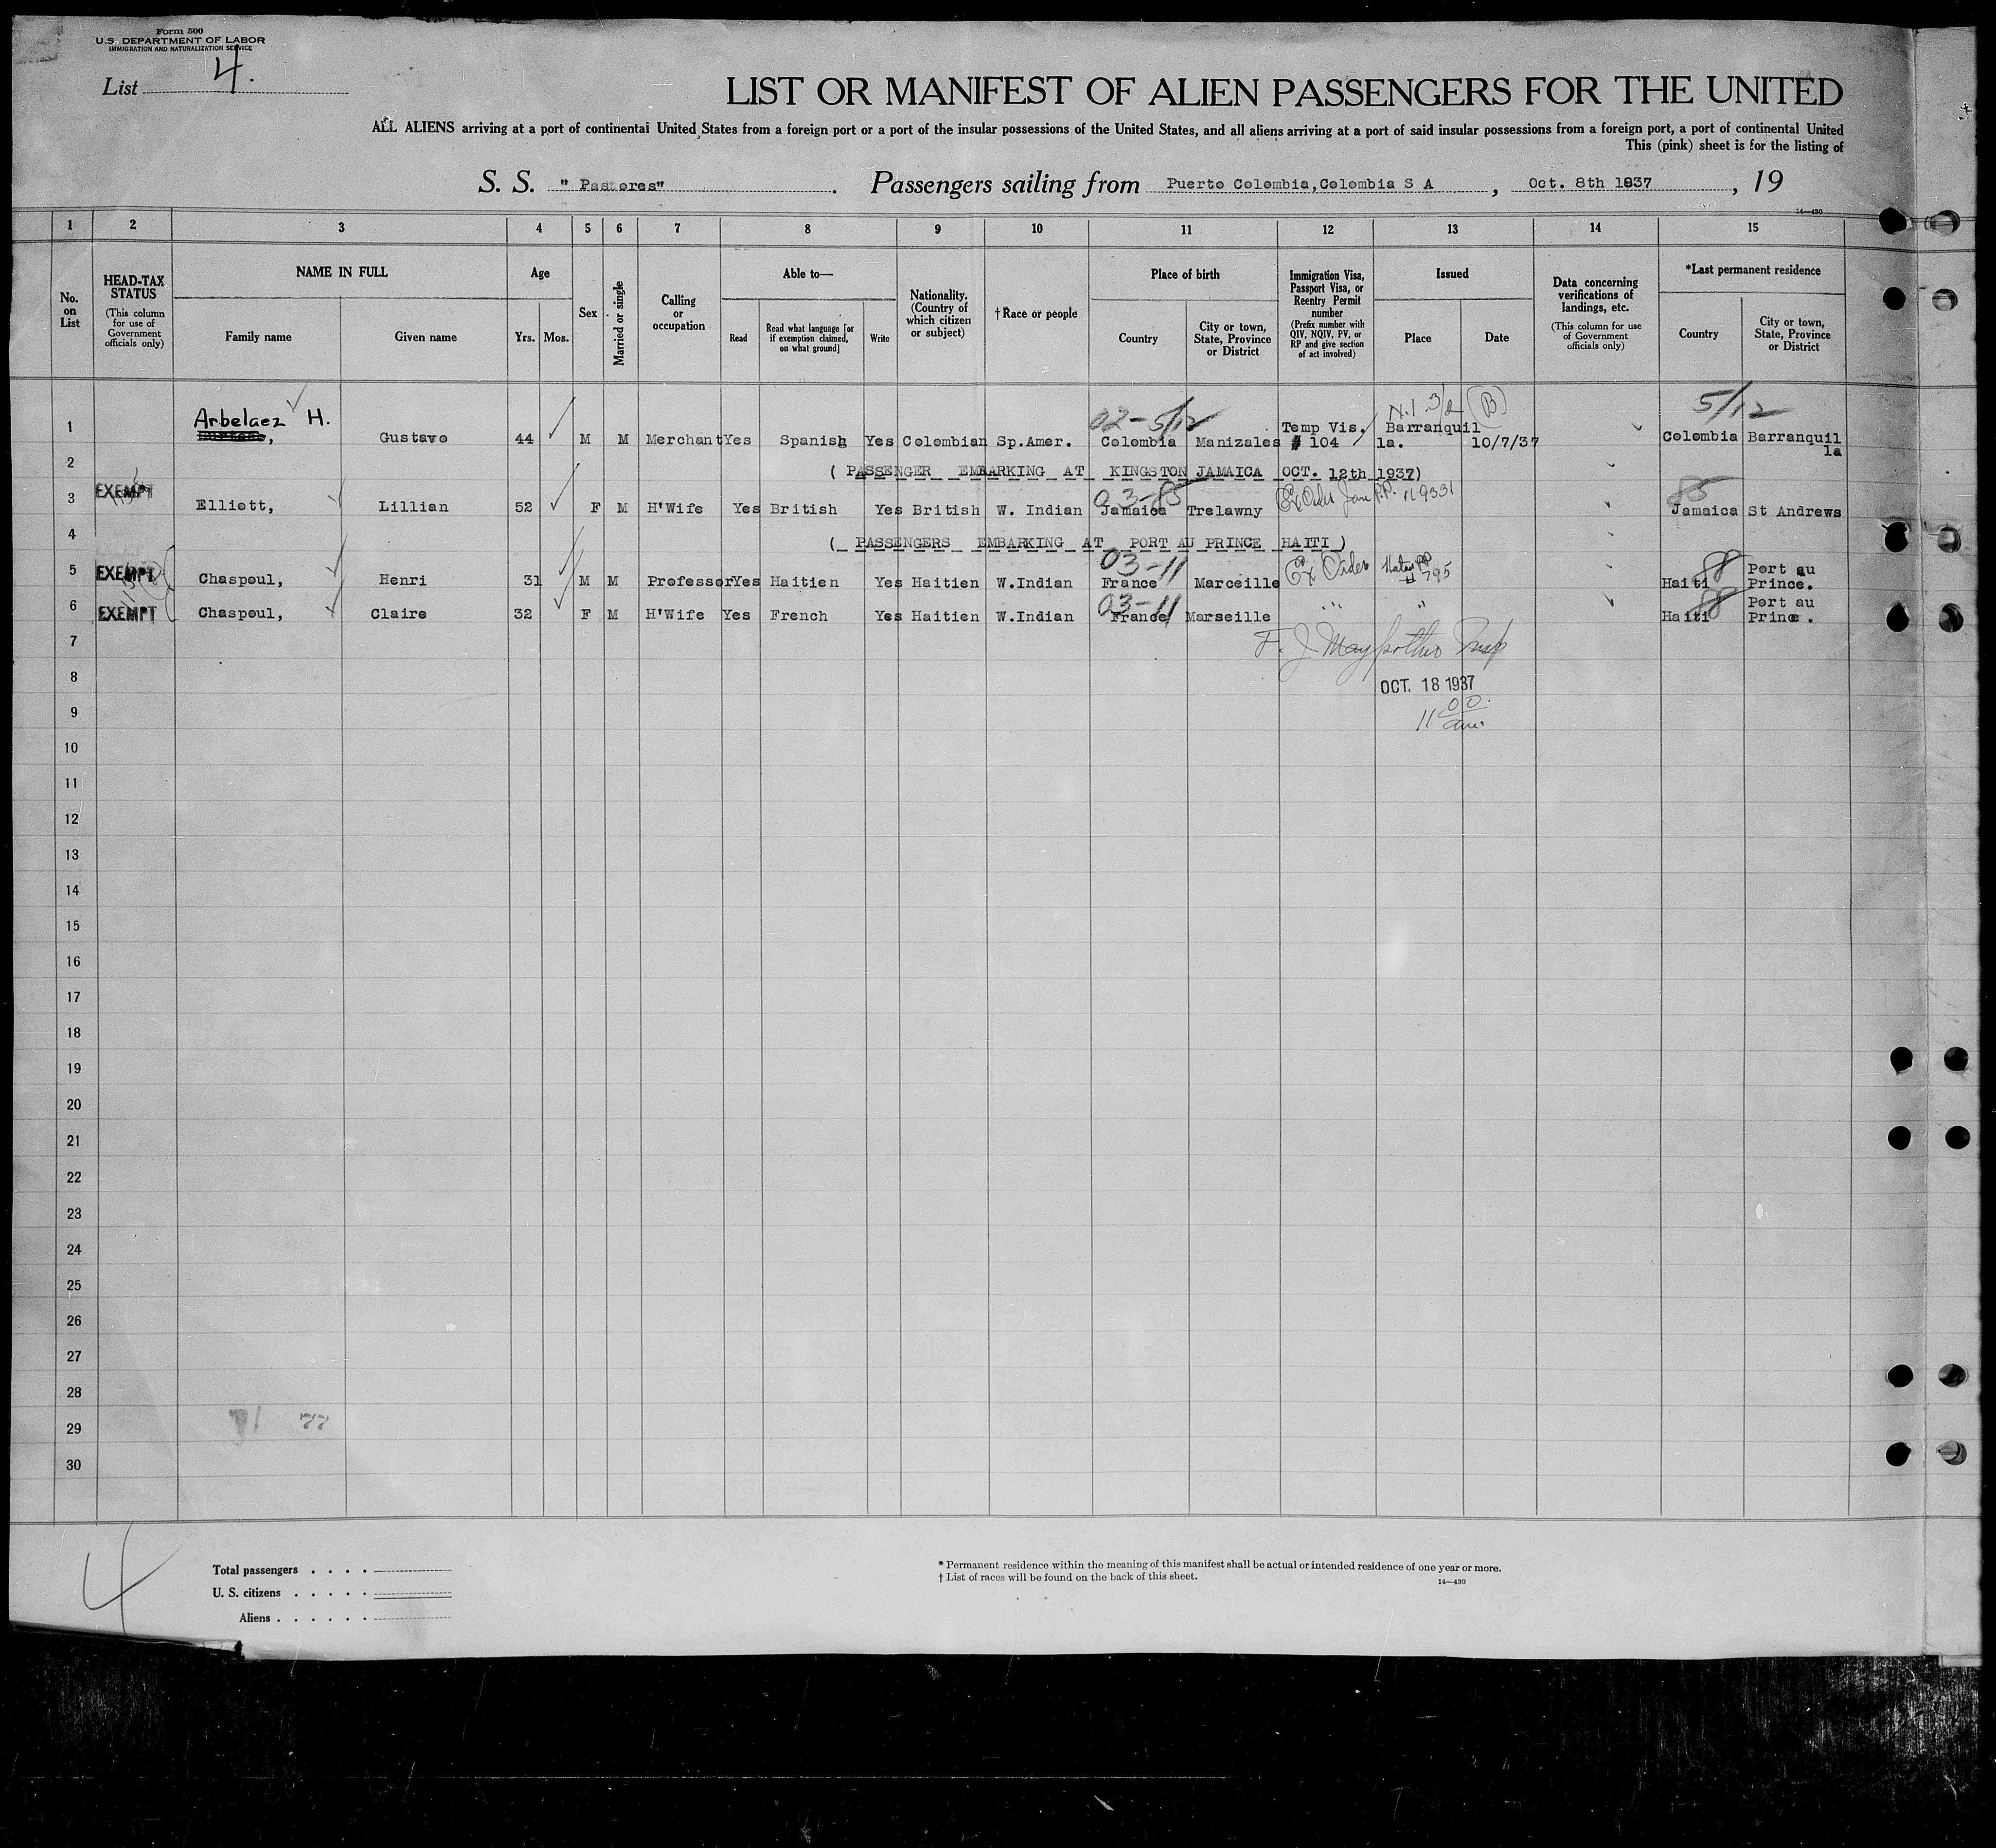 Form 500
U.S. DEPARTMENT OF LABOR
IMMIGRATION AND NATURALIZATION SERVICE
List 4.
LIST OR MANIFEST OF ALIEN PASSENGERS FOR THE UNITED
ALL ALIENS arriving at a port of continental United States from a foreign port or a port of the insular possessions of the United States, and all aliens arriving at a port of said insular possessions from a foreign port, a port of continental United
This (pink) sheet is for the listing of
S. S. " Pastores" . Passengers sailing from Puerto Colombia,Colombia S A , Oct. 8th 1937 , 19
14—430
1 2 3 4 5 6 7 8 9 10 11 12 13 14 15
No. on List
HEAD-TAX STATUS
(This column for use of Government officials only)
NAME IN FULL
Family name
Given name
Age
Yrs. Mos.
Sex
Married or single
Calling or occupation
Able to—
Read
Read what language [or if exemption claimed, on what ground]
Write
Nationality. (Country of which citizen or subject)
†Race or people
Place of birth
Country
City or town, State, Province or District
Immigration Visa, Passport Visa, or Reentry Permit number
(Prefix number with QIV, NQIV, PV, or RP and give section of act involved)
Issued
Place
Date
Data concerning verifications of landings, etc.
(This column for use of Government officials only)
*Last permanent residence
Country
City or town, State, Province or District
02-5/12 N.1 3/2 (B) 5/12
1 Arbelaez H. Gustavo 44 M M Merchant Yes Spanish Yes Colombian Sp.Amer. Colombia Manizales Temp Vis. # 104 Barranquil la. 10/7/37 Colombia Barranquil la
2 ( PASSENGER EMBARKING AT KINGSTON JAMAICA OCT. 12th 1937)
03-85 85
3 EXEMPT Elliott, Lillian 52 F M H'Wife Yes British Yes British W. Indian Jamaica Trelawny Ex Order Jam P.P. 119331 Jamaica St Andrews
4 ( PASSENGERS EMBARKING AT PORT AU PRINCE HAITI )
03-11 88
5 EXEMPT Chaspoul, Henri 31 M M Professor Yes Haitien Yes Haitien W.Indian France Marceille Ex Order # 795 Haiti Port au Prince.
03-11 88
6 EXEMPT Chaspoul, Claire 32 F M H'Wife Yes French Yes Haitien W.Indian France Marseille " " Haiti Port au Prince.
7 F. J. Insp
8 OCT. 18 1937
9 11 00 am.
10
11
12
13
14
15
16
17
18
19
20
21
22
23
24
25
26
27
28
29 71 77
30
4
Total passengers . . . .
U. S. citizens . . . . .
Aliens . . . . . .
* Permanent residence within the meaning of this manifest shall be actual or intended residence of one year or more.
† List of races will be found on the back of this sheet.
14—430